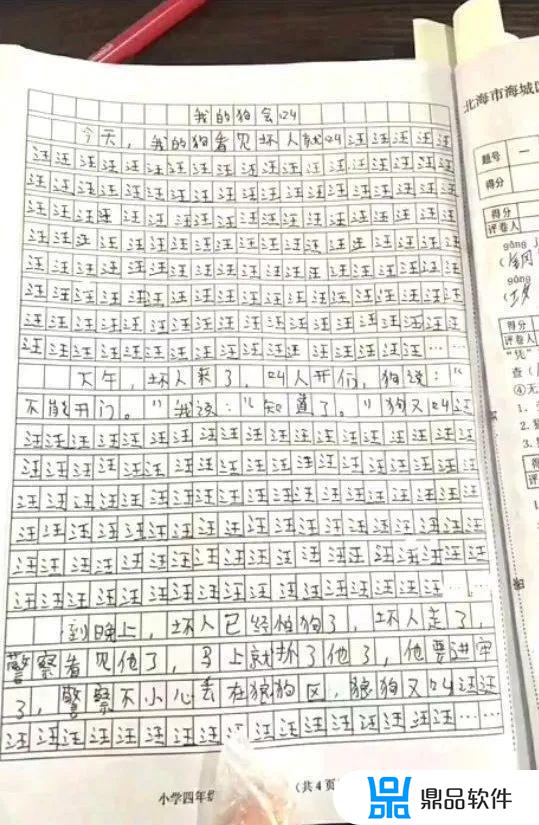 我的狗会叫
今天，我的狗看见坏人就叫汪汪汪汪
汪汪汪汪汪汪汪汪汪汪汪汪汪汪汪汪汪汪
汪汪汪汪汪汪汪汪汪汪汪汪汪汪汪汪汪汪
汪汪汪汪汪汪汪汪汪汪汪汪汪汪汪汪汪汪
汪汪汪汪汪汪汪汪汪汪汪汪汪汪汪汪汪汪
汪汪汪汪汪汪汪汪汪汪汪汪汪汪汪汪汪汪
汪汪汪汪汪汪汪汪汪汪汪汪汪汪汪汪汪汪
汪汪汪汪汪汪汪汪汪汪汪汪汪汪汪汪汪汪
汪汪汪汪汪汪汪汪汪汪汪汪汪汪汪汪……
下午，坏人来了，叫人开们，狗说：“
不能开门。”我说：“知道了。”狗又叫汪
汪汪汪汪汪汪汪汪汪汪汪汪汪汪汪汪汪汪
汪汪汪汪汪汪汪汪汪汪汪汪汪汪汪汪汪汪
汪汪汪汪汪汪汪汪汪汪汪汪汪汪汪汪汪汪
汪汪汪汪汪汪汪汪汪汪汪汪汪汪汪汪汪汪
汪汪汪汪汪汪汪汪汪汪汪汪汪汪汪汪汪汪
汪汪汪汪汪汪汪汪汪汪汪汪汪汪汪汪……
到晚上，坏人已经怕狗了，坏人走了，
警察看见他了，马上就抓了他了，他要进牢
了，警察不小心丢在狼狗区，狼狗又叫汪汪
汪汪汪汪汪汪汪汪汪汪汪汪汪汪汪汪……
小学四年级
（共4页
北海市海城
题号 一
得分
得分
评卷人
gāng
gōng
得分
评卷人
查（
④无
1.
2.
3.
鼎品软件